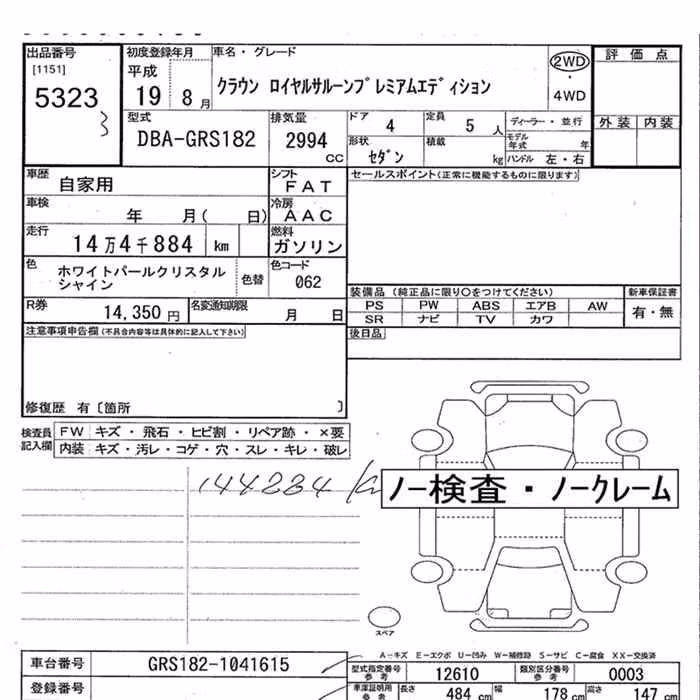 出品番号 初度登録年月 車名・グレード 評価点
[1151] 平成 2WD
5323 19 8月 クラウン ロイヤルサルーンプレミアムエディション ・
4WD
型式 排気量 ドア 4 定員 5人 ディーラー・並行 外装 内装
DBA-GRS182 2994 cc 形状 セダン 積載 kg モデル年式 年
ハンドル 左・右
車歴 自家用 シフト FAT セールスポイント(正常に機能するものに限ります)
車検 年 月( 日) 冷房 AAC
走行 14万4千884 km 燃料 ガソリン
色 ホワイトパールクリスタルシャイン 色替 色コード 062
装備品 (純正品に限り○をつけてください) 新車保証書
R券 14,350円 名変通知期限 月 日 PS PW ABS エアB AW 有・無
SR ナビ TV カワ
注意事項申告欄(不具合内容等は具体的に記入して下さい) 後日品
修復歴 有〔箇所 〕
検査員記入欄 FW キズ・飛石・ヒビ割・リペア跡・×要
内装 キズ・汚レ・コゲ・穴・スレ・キレ・破レ
144884 km
ノー検査・ノークレーム
スペア
A-キズ E-エクボ U-凹み W-補修跡 S-サビ C-腐食 XX-交換済
車台番号 GRS182-1041615 型式指定番号 参考 12610 類別区分番号 参考 0003
登録番号 車庫証明用 参考 長さ 484 cm 幅 178 cm 高さ 147 cm